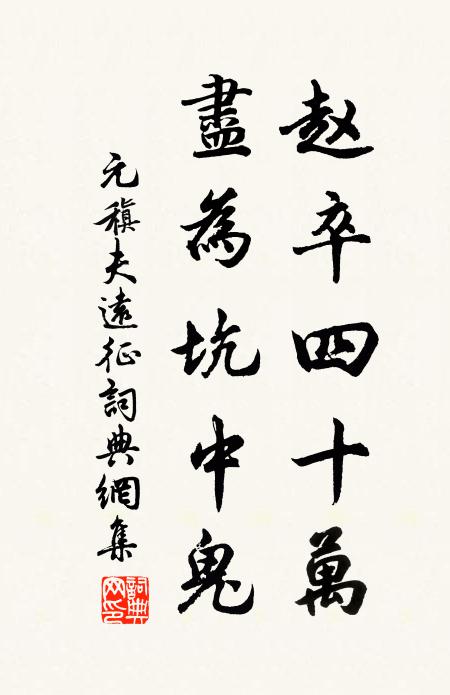 赵卒四十萬
盡為坑中鬼
元稹夫遠征詞典網集
詞典网印